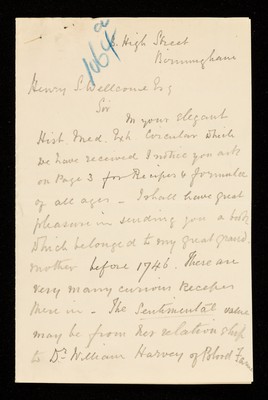 164a
High Street
Birmingham
Henry S. Wellcome Esq
Sir
In your elegant
Hist Med. Exh Circular which
we have received I notice you ask
on Page 3 for Recipes & formulae
of all ages - I shall have great
pleasure in sending you a book
which belonged to my great grand
mother before 1746. There are
very many curious Receipes
there in - The Sentimental value
may be from her relationship
to Dr William Harvey of Blood Fame